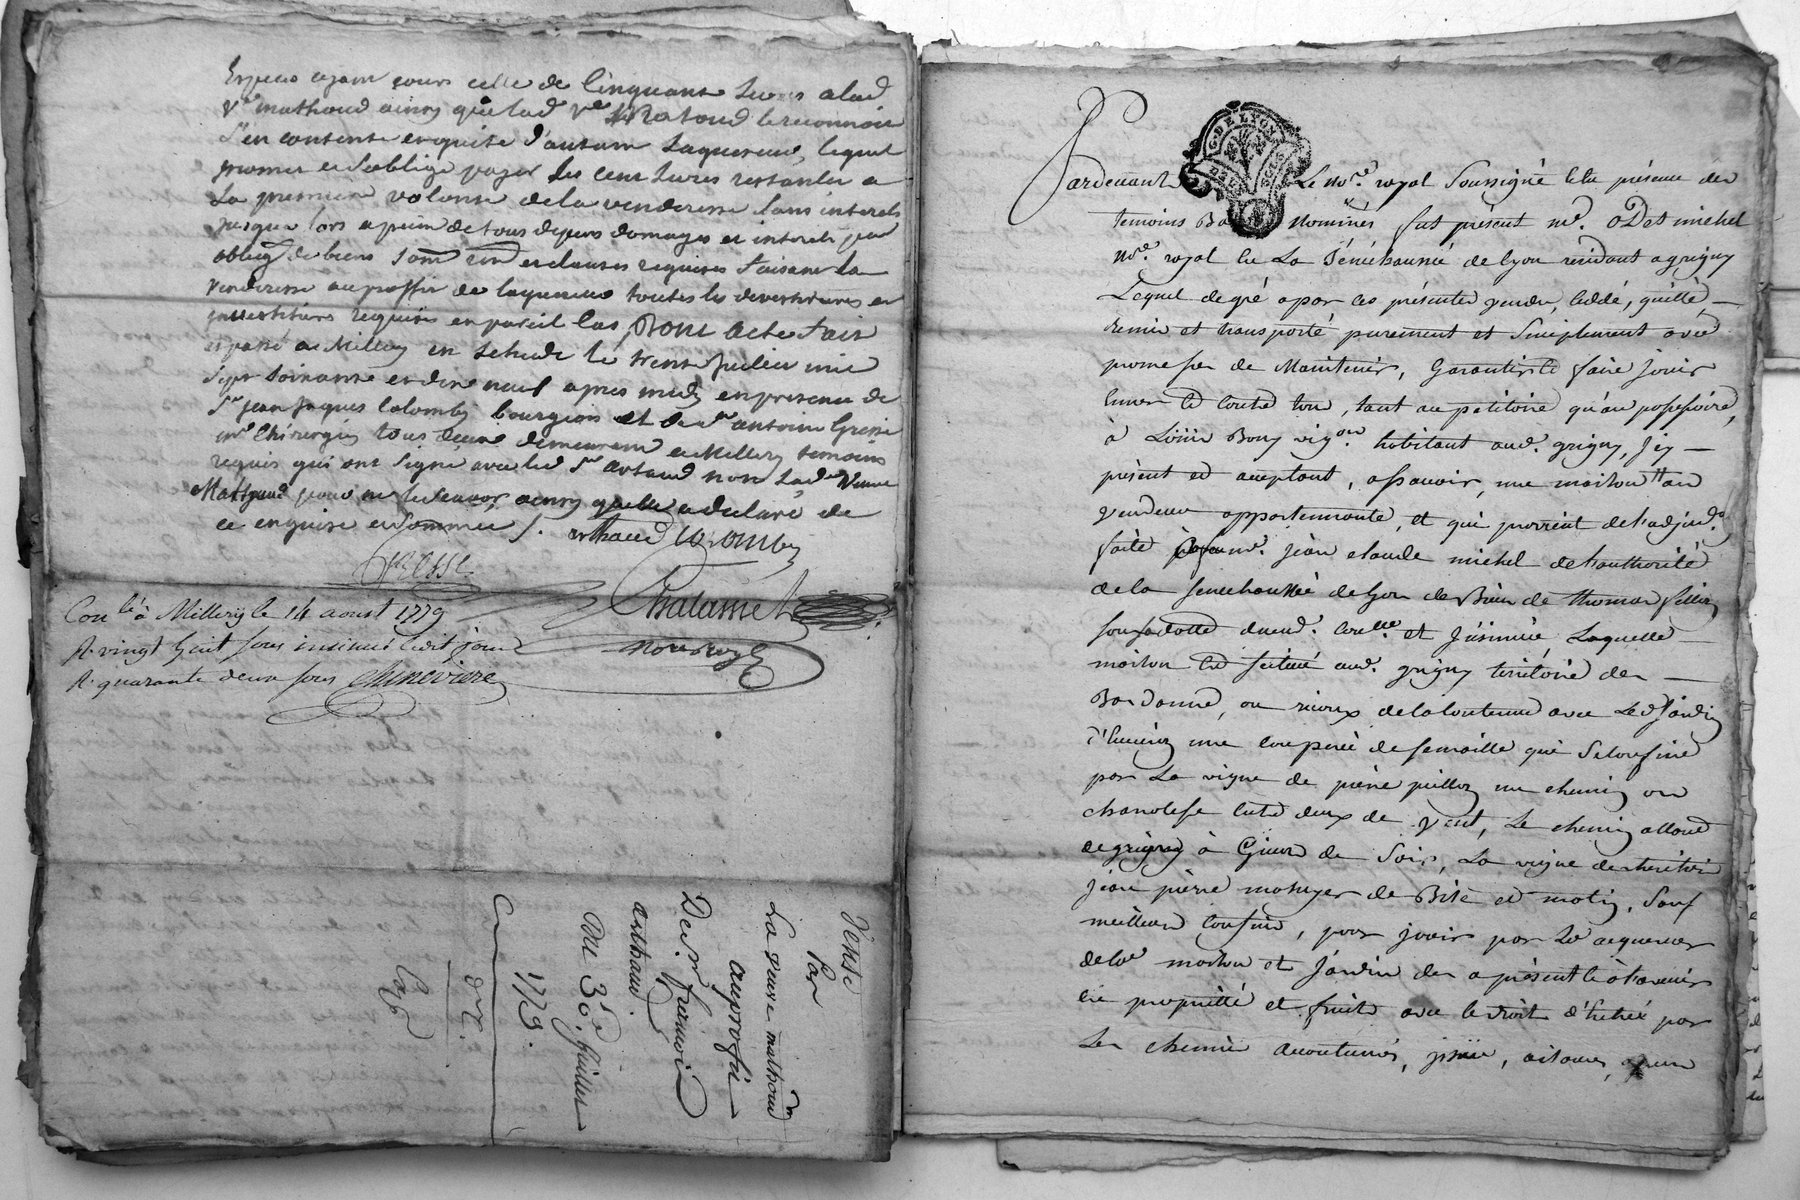 Especes ayant cours celle de Cinquante Livres a lad
Ve mathoud ainsy que lad Ve Matoud le reconnoit
S'en contente en quitte d'autant Laquereur, lequel
promet et Soblige payer les cent Livres restantes a
La premiere volonté de la venderesse Sans interets
jusques lors a peine de tous depens domages et interets par
oblig de biens Soum ren et clauses requises faisant la
venderesse au proffit de laquereur toutes les devestitures et
investitures requises en pareil Cas, Dont acte fait
et passé a Millery en Letude le trente Juillet mil
Sept Soixante et dix neuf apres midy en presence de
Sr Jean Jaques Colomby bourgeois et de Sr antoine Gresse
me Chirurgien tous deux demeurant a Millery temoins
requis qui ont Signé avec led Sr artaud non Lad Veuve
Mathoud pour ne le Scavoir, ainsy quelle a declaré de
ce enquise et Sommée /. arthaud Colomby
Gresse
Chalamel
nore royal
Conlé à Millery le 14 aoust 1779
R. vingt huit sous insinué ledit jour
R. quarante deux sous Chinevière
Vente
Par
La veuve mathoud
au profit
De Sr françois
arthaud
Du 30e juillet
1779.
Pardevant Le Nore. royal Soussigné et en présence des
temoins Bas Nommés fut présent me. Odet michel
Nore. royal en La Sénéchaussée de Lyon résidant a grigny
Lequel de gré a par ces présentes vendu, cédé, quitté,
remis et transporté purement et Simplement avec
promesse de Maintenir, Garantir et faire jouir
Envers et contre tous, tant au petitoire qu'au possessoire,
à Loüis Bony vigon. habitant aud. grigny, Icy
présent et acceptant, assavoir, une maison au
vendeur appartenante, et qui provient de l'adjudon.
faite a feu me. Jean claude michel de l'authorité
de la senechaussée de Lyon des Biens de thomas
sous la datte du aud. Contt et Insinué Laquelle
maison est scituée aud. grigny territoire de
Bardanne, ou rieux de la Contenue avec Led Jardin
d'Environ une couperée de semaille qui Se confine
par La vigne de pierre peillon un chemin ou
charolesse entre deux de vent, Le chemin allant
de grigny à Givors de Soir, La vigne des heritiers
Jean pierre de Bize et matin, Sauf
meilleurs Confins, pour jouir par Led acquereur
de lad maison et Jardin des a présent et à l'avenir
en propriété et fruits avec le droit d'Entrée par
Les chemins accoutumés, issüe, aisances,